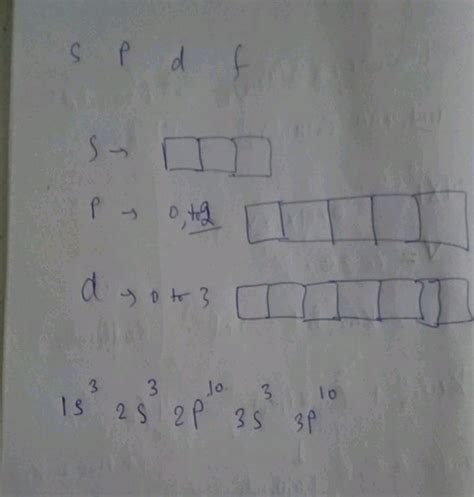 s p d f
s →
p → 0, to 2
d → 0 to 3
1s³ 2s³ 2p¹⁰ 3s³ 3p¹⁰